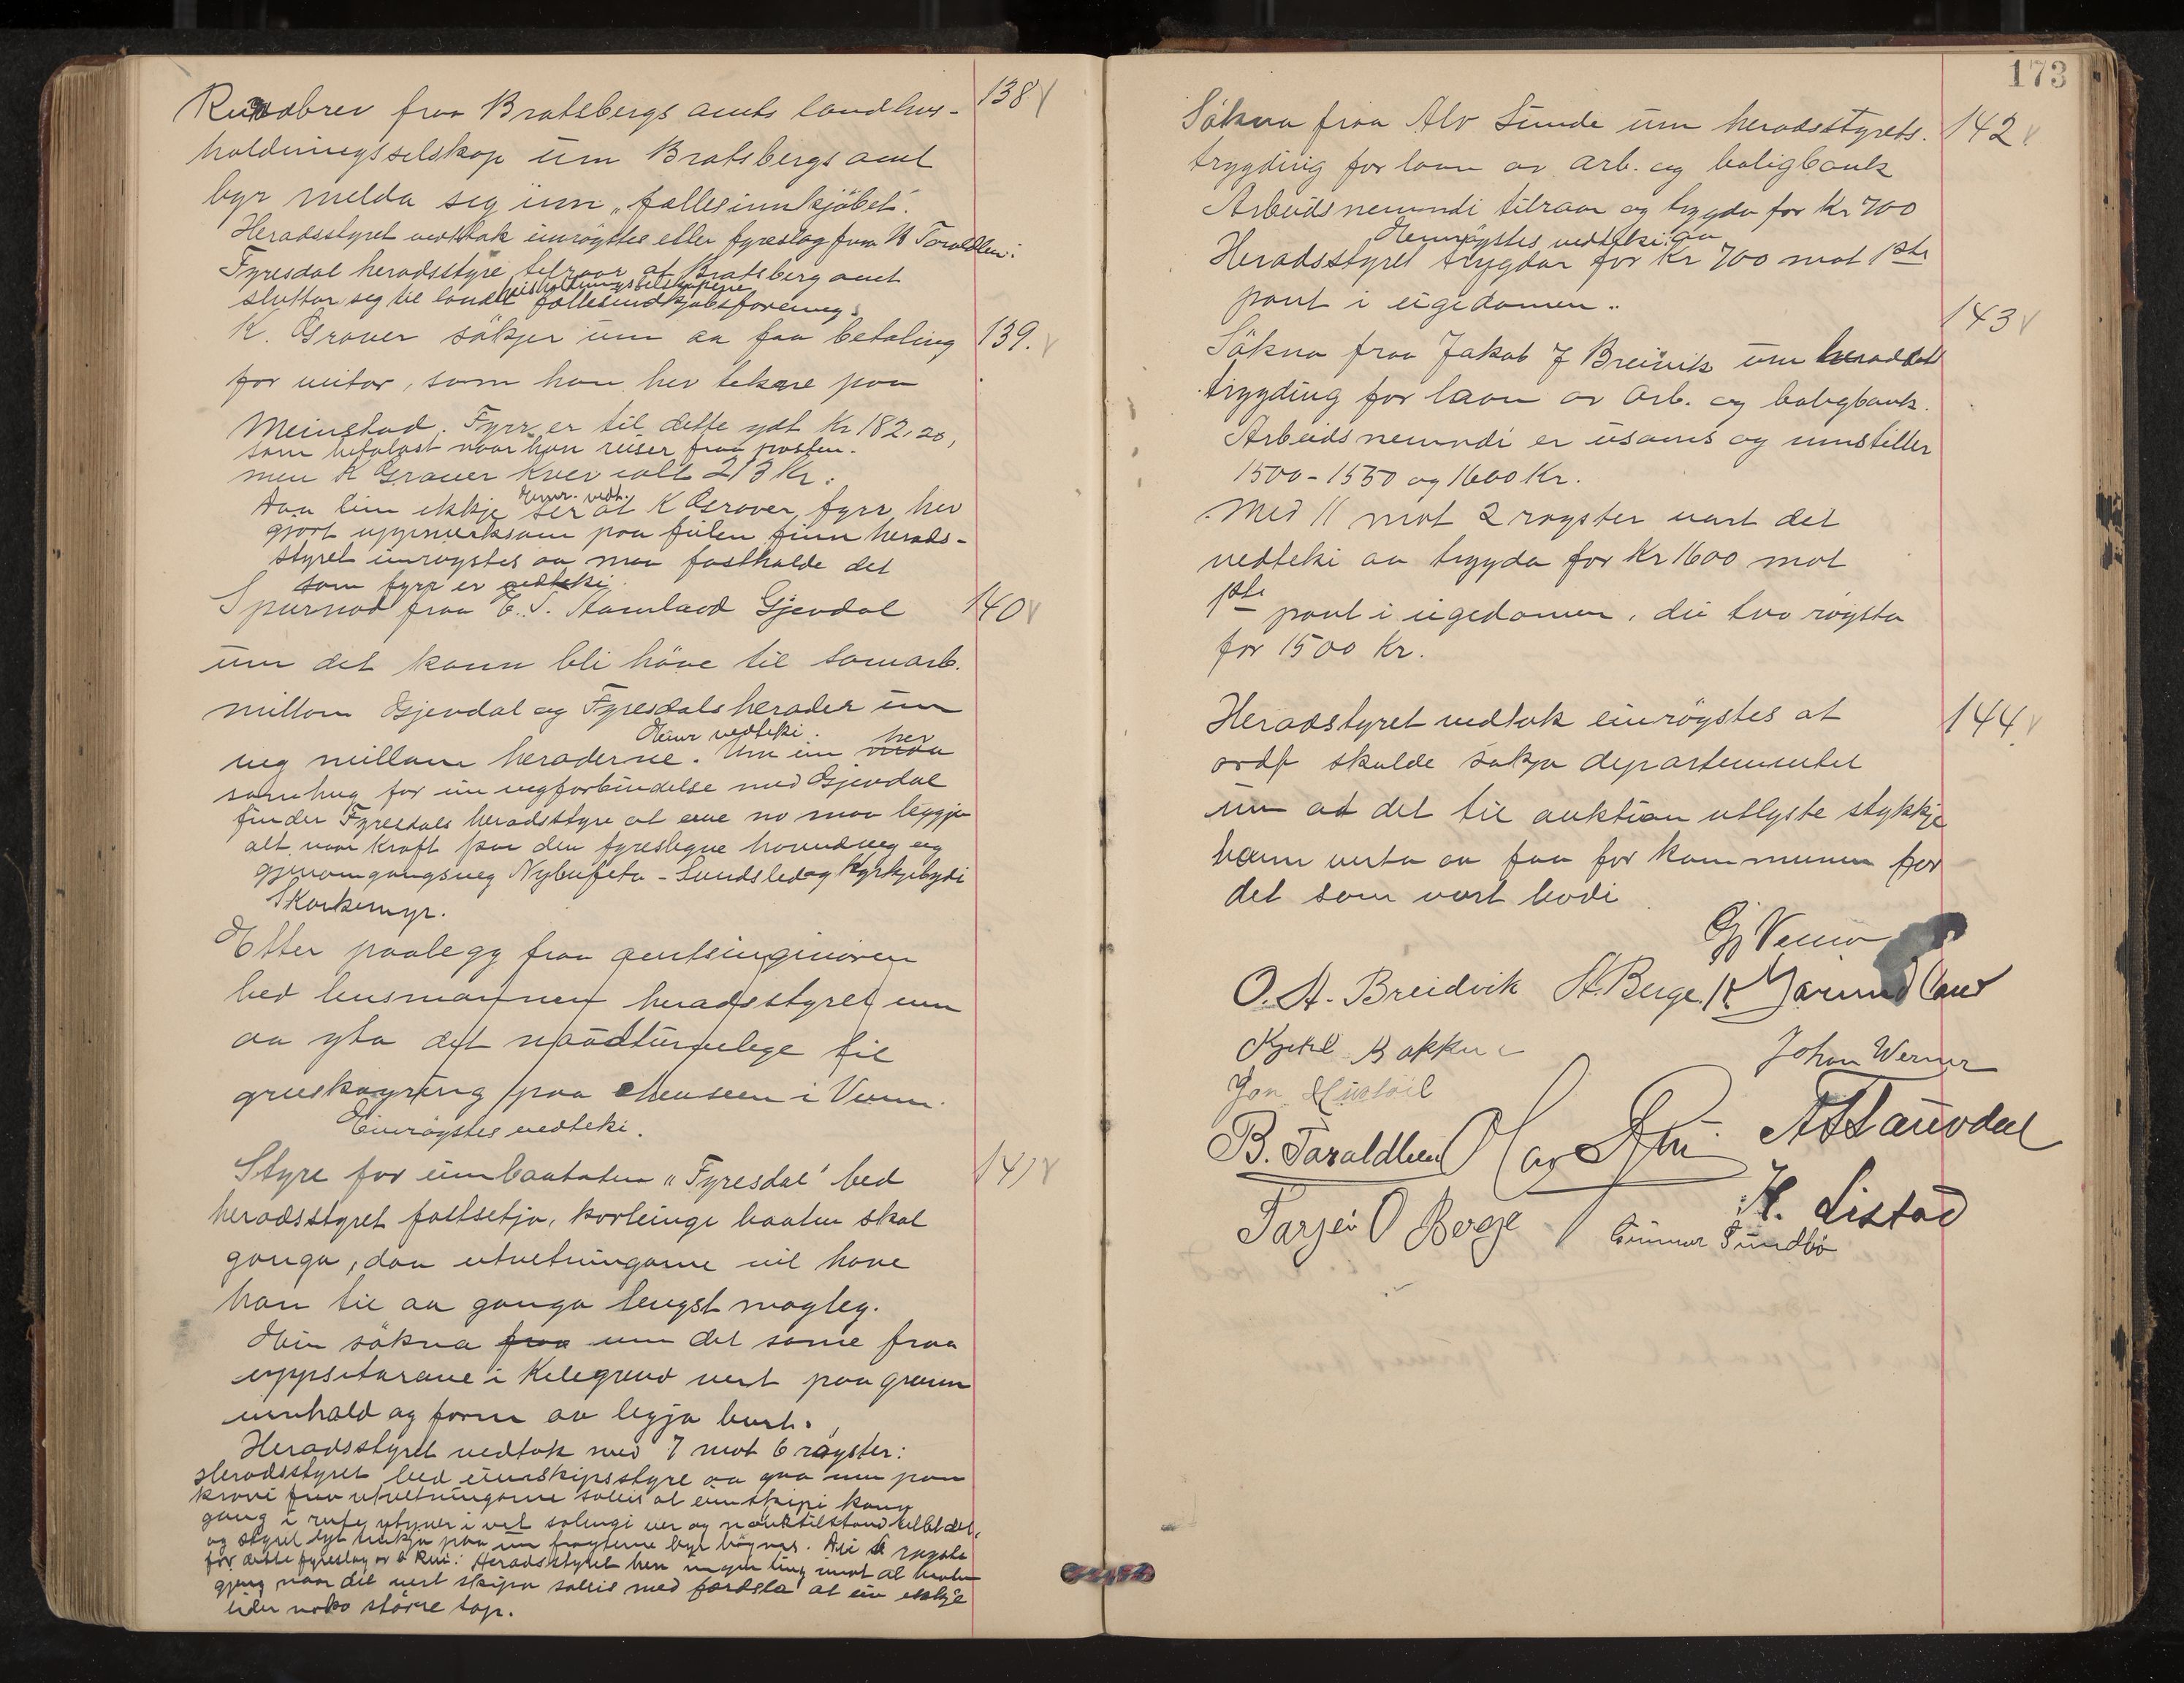 138
Rundbrev fraa Bratsbergs amts landhus-
holdningsselskap um Bratsbergs amt
byr melda seg inn „fællesinnkjöbet".
Heradsstyret vedtok einröystes etter fyreslag fraa B Taraldlien:
Fyresdal heradsstyre tilraar at Bratsberg amt
sluttar seg til landhusholdningsselskapene
fællesindkjöbsforening.
139.
K. Graver sökjer um aa faa betaling
for mitor, som han hev tekne paa
Meinstad. Fyrr er til dette ydt Kr 182,20,
som betalast naar han reiser fraa posten.
men K Graver krev ialt 213 Kr.
Einr. vedt.
Daa ein ikkje ser at K Graver fyrr hev
gjort uppmerksam paa feilen finn herads-
styret einröystes aa maa fasthalde det
som fyrr er vedteki.
140
Spursmod fraa E. T. Hamland Gjevdal
um det kann bli höve til samarb.
millom Gjevdal og Fyresdals herader um
veg millom heraderne. Einr vedteki. Um ein hev
samhug for ein vegforbindelse med Gjevdal
finder Fyresdals heradsstyre at eine no maa leggja
alt vaar kraft paa den fyreslegne hovudveg og
gjenomgangsveg Nybufeta - Sundsled og Kyrkjebygdi
Skorkemyr.
Etter paalegg fraa amtsingeniören
bed lensmannen heradsstyret um
aa yta det naudturvelege til
gruskøyring paa chauseen i Veum.
Einröystes vedteki.
141
Styre for eimbaataten „Fyresdal" bed
heradsstyret fastsetja, korleinge baaten skal
ganga, daa utvetningarne vil have
han til aa ganga lengst mogleg.
Ein sökna fraa um det same fraa
uppsitarane i Kilegrend vert paa grunn
innhald og form av legja burt.
Heradsstyret vedtok med 7 mot 6 røyster:
Heradsstyret bed eimskipsstyre aa gaa inn paa
kravi fraa utvetningarne soleis at eimskipi kann
gang i rute utyver i vet solengi ver og
og styret lyt tenkja paa um fragterne byr högnas. Dei 6 røysta
for dette fyreslag av B Rui: Heradsstyret hev ingen ting imot at baaten
gjeng naar dei vert skipa soleis med færdsla at ein ikkje
lider noko större tap.
173
142
Sökna fraa Alv Sunde um heradsstyrets
trygding for laan av arb. og boligbank
Arbeidsnemndi tilraar og trygda for Kr 700
Einröystes vedteki: aa
Heradsstyret trygdar for Kr 700 mot 1ste
pant i eigedomen.
143
Sökna fraa Jakob J Breivik um heradets
trygding for laan av Arb. og boligbank.
Arbeidsnemndi er usams og innstiller
1500 - 1550 og 1600 Kr.
Med 11 mot 2 røyster vart det
vedteki aa trygda for Kr 1600 mot
1ste pant i eigedomen, dei tvo röysta
for 1500 Kr.
144
Heradstyret vedtok einröystes at
ordf skulde søkja departementet
um at det til auktion utlyste stykkje
kann verta aa faa for kommunen for
det som vart bodi
Gj Veum
O. A. Breidvik H. Berge. K Momrak
Kjetil Bakken Johan Werner
Jon Mustöil
B. Taraldlien Olav Rui A H Lauvdal
Tarjei O Berge H. Listad
Gunnar Sundbö